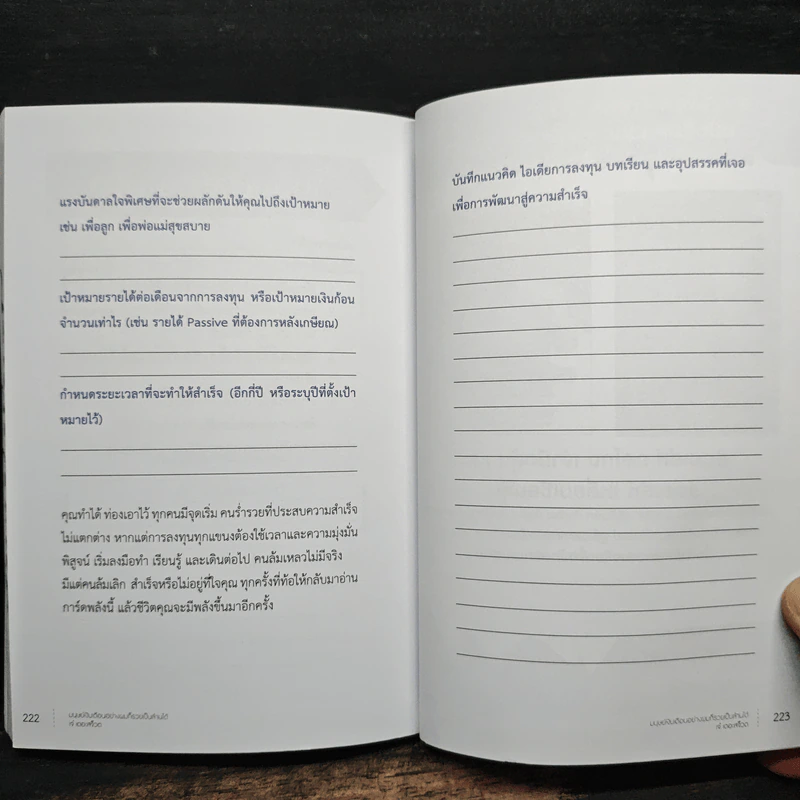 แรงบันดาลใจพิเศษที่จะช่วยผลักดันให้คุณไปถึงเป้าหมาย
เช่น เพื่อลูก เพื่อพ่อแม่สุขสบาย
เป้าหมายรายได้ต่อเดือนจากการลงทุน หรือเป้าหมายเงินก้อน
จำนวนเท่าไร (เช่น รายได้ Passive ที่ต้องการหลังเกษียณ)
กำหนดระยะเวลาที่จะทำให้สำเร็จ (อีกกี่ปี หรือระบุปีที่ตั้งเป้า
หมายไว้)
คุณทำได้ ท่องเอาไว้ ทุกคนมีจุดเริ่ม คนร่ำรวยที่ประสบความสำเร็จ
ไม่แตกต่าง หากแต่การลงทุนทุกแขนงต้องใช้เวลาและความมุ่งมั่น
พิสูจน์ เริ่มลงมือทำ เรียนรู้ และเดินต่อไป คนล้มเหลวไม่มีจริง
มีแต่คนล้มเลิก สำเร็จหรือไม่อยู่ที่ใจคุณ ทุกครั้งที่ท้อให้กลับมาอ่าน
การ์ดพลังนี้ แล้วชีวิตคุณจะมีพลังขึ้นมาอีกครั้ง
222
มนุษย์เงินเดือนอย่างผมก็รวยเป็นล้านได้
บันทึกแนวคิด ไอเดียการลงทุน บทเรียน และอุปสรรคที่เจอ
เพื่อการพัฒนาสู่ความสำเร็จ
มนุษย์เงินเดือนอย่างผมก็รวยเป็นล้านได้
223